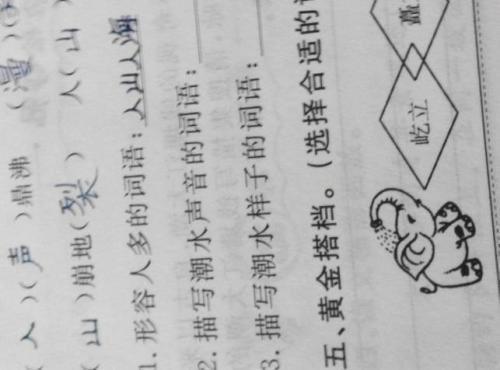 (人)(声)鼎沸 (漫)(
(山)崩地(裂) 人(山)
1. 形容人多的词语:人山人海
2. 描写潮水声音的词语:
3. 描写潮水样子的词语:
五、黄金搭档。(选择合适的
屹立 矗